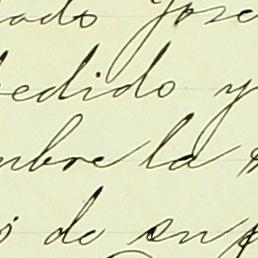 ado José
pedido y
mbre la
s de su